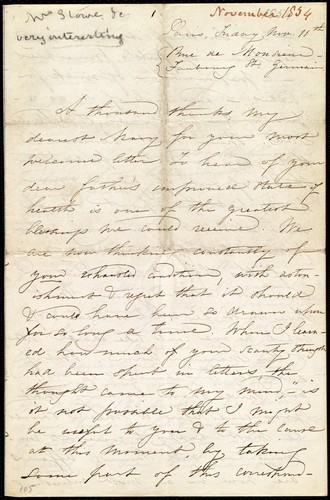 Mrs Stowe &c
very interesting
November 1854
Paris, Friday Nov. 11th
Rue de Monsieur
Faubourg St. Germain
A thousand thanks, my
dearest Mary for your most
welcome letter. To hear of your
dear father's improved state of
health is one of the greatest
blessings we could receive. We
are now thinking constantly of
your exhausted condition, with aston-
ishment & regret that it should
& could have been so drawn upon
for so long a time. When I learn-
ed how much of your scanty strength
had been spent in letters the
thought came to my mind, "is
it not possible that I might
be useful to you & to the cause
at this moment, by taking
some part of this correspond-
105